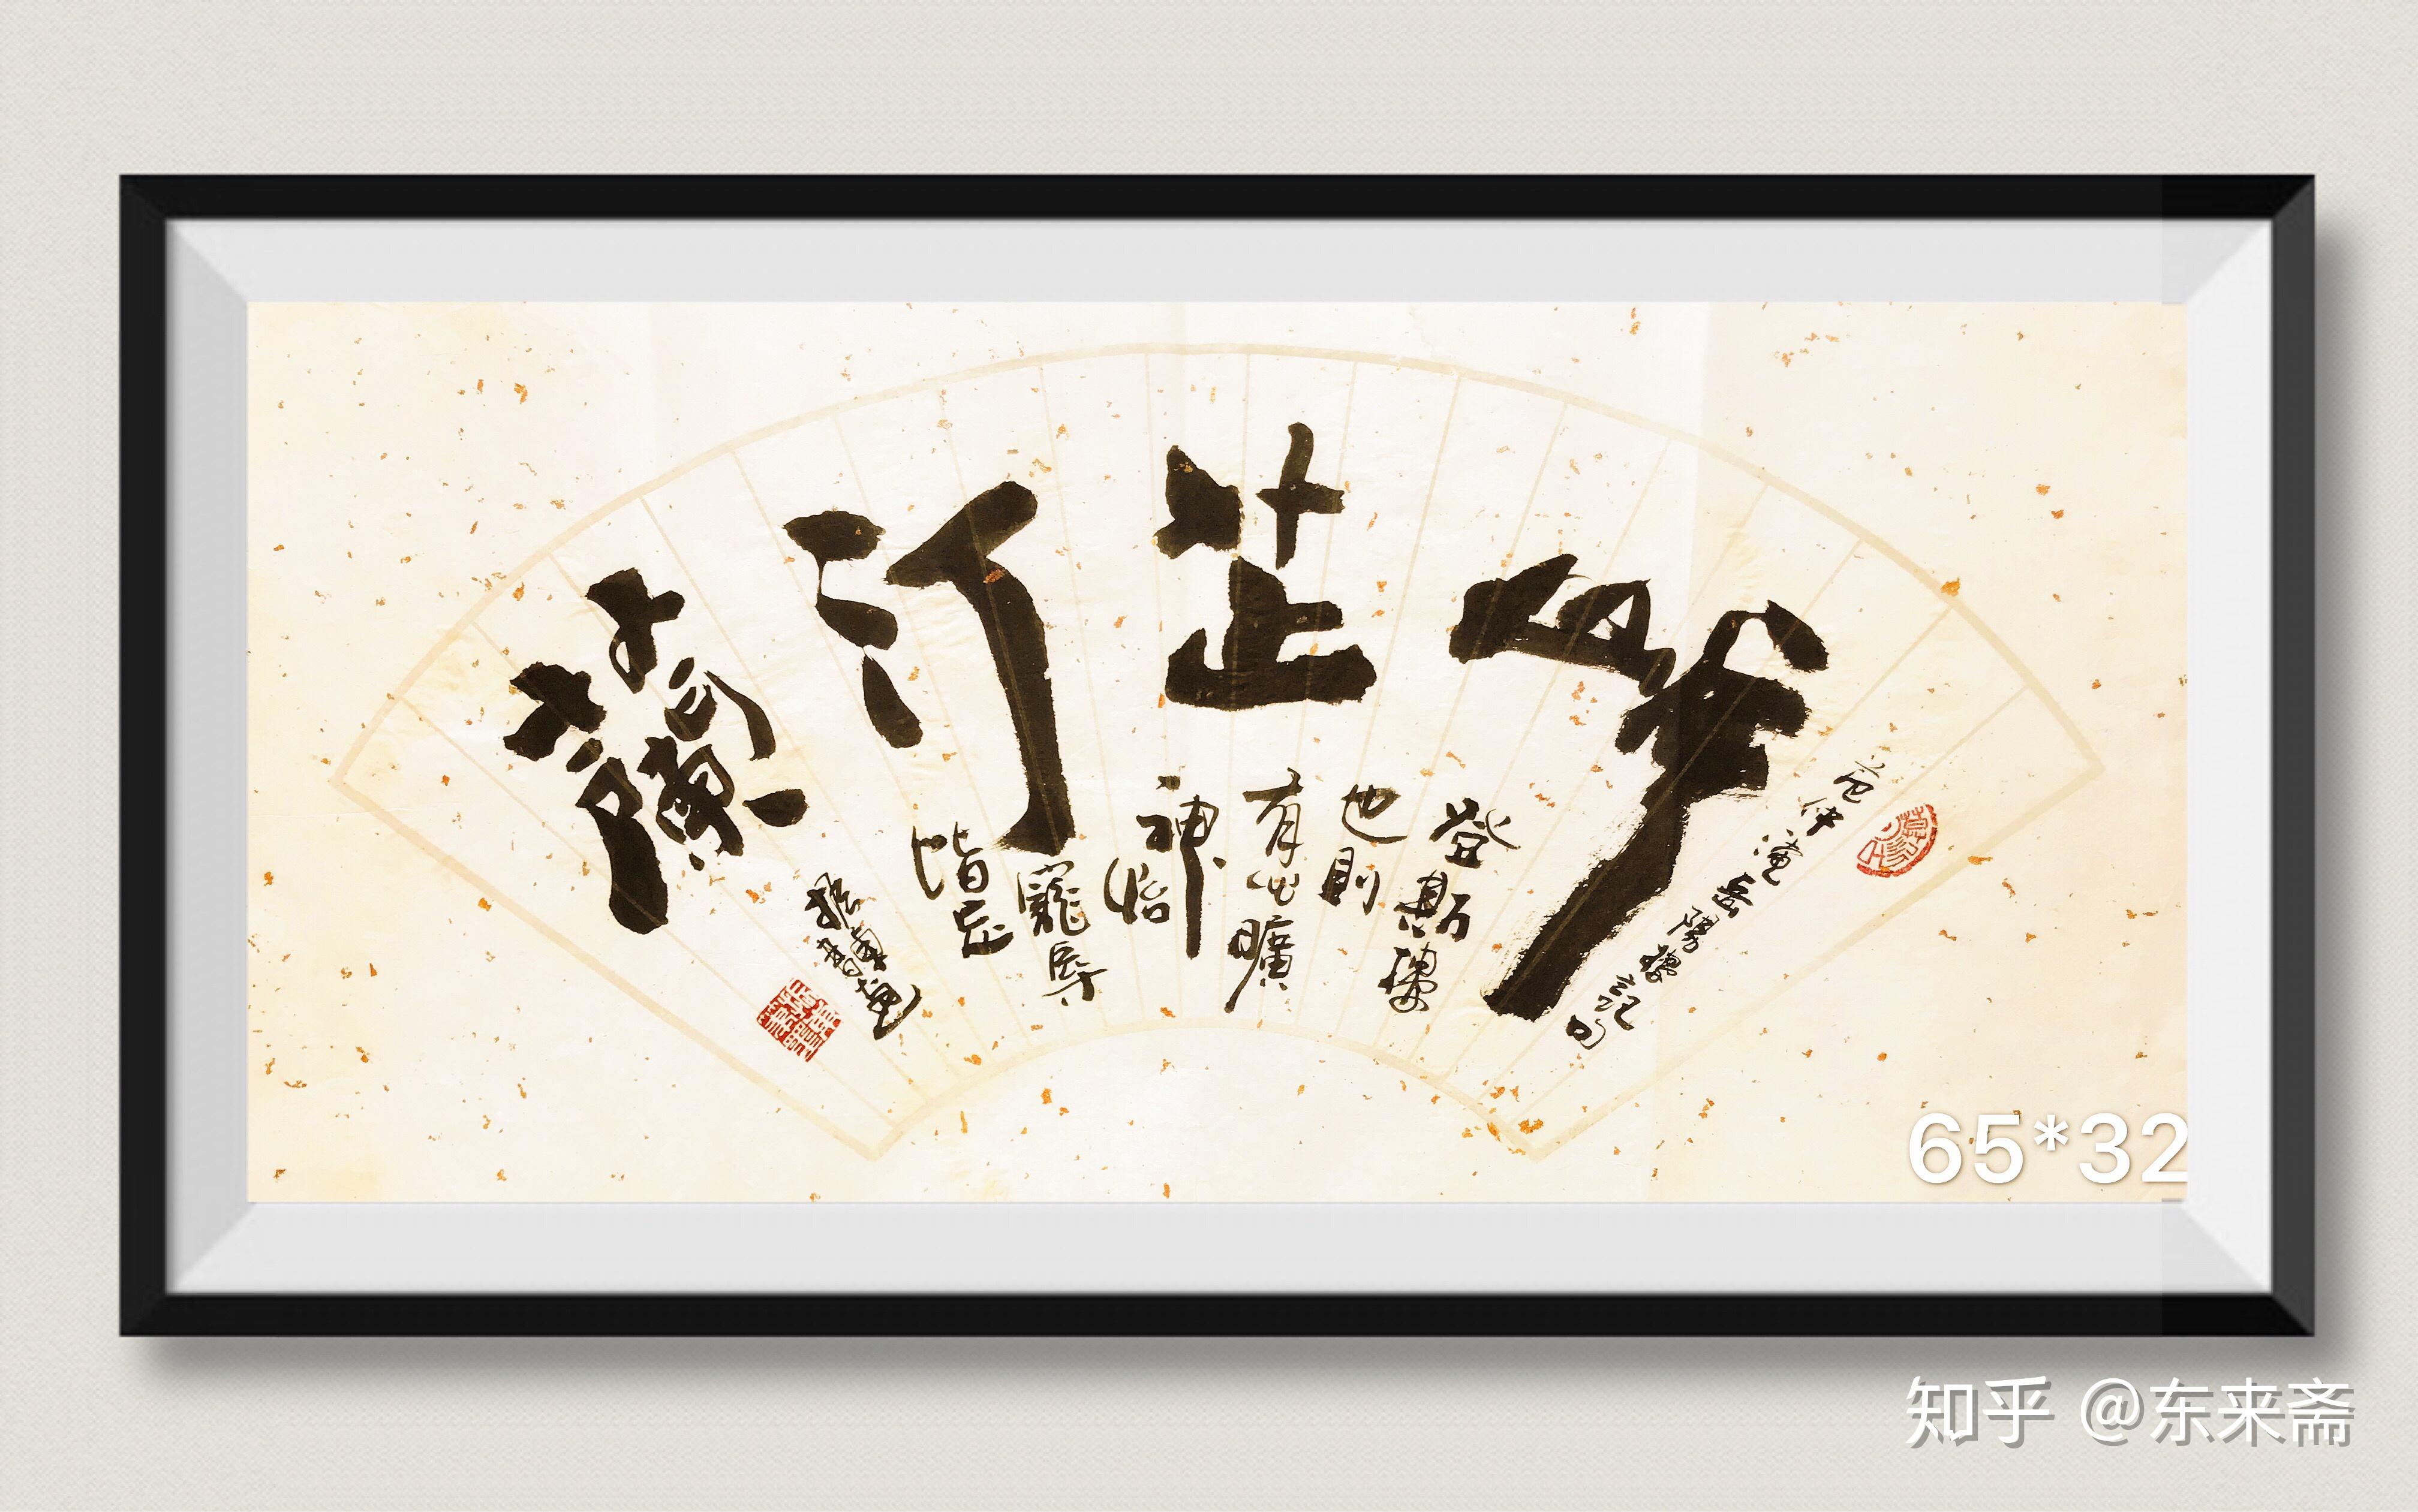 岸芷汀蘭
范仲淹岳陽樓記句
登斯樓
也則
有心曠
神怡
寵辱
皆忘
65*32
知乎 @东来斋